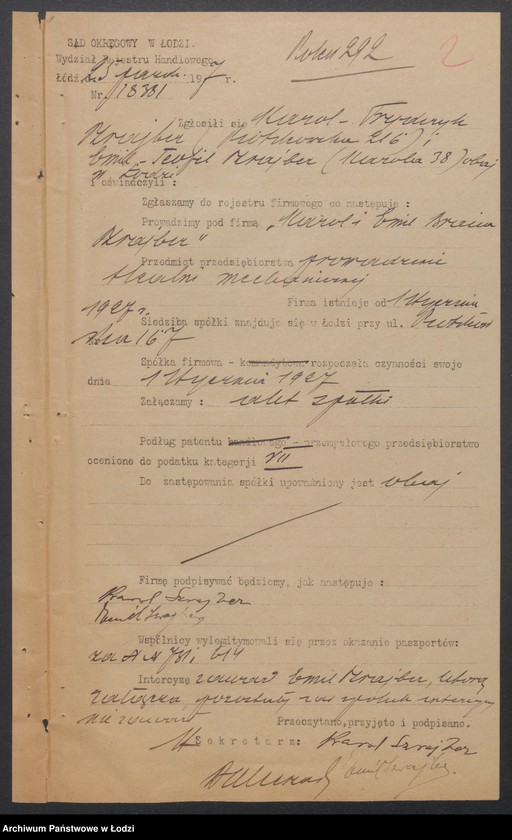 SĄD OKRĘGOWY W ŁODZI.
Wydział Rejestru Handlowego
Łódź, dn. 5 marca 1927 r.
Nr. 18381
Rohn 292
2
Zgłosili się Karol-Fryderyk
Szrajber (Piotrkowska 216) i
Emil-Teofil Szrajber (Karola 38) obaj
w Łodzi
i oświadczyli :
Zgłaszamy do rejestru firmowego co następuje :
Prowadzimy pod firmą „Karol i Emil Bracia
Szrajber"
Przedmiot przedsiębiorstwa prowadzenie
tkalni mechanicznej
Firma istnieje od 1 stycznia
1927 r.
Siedziba spółki znajduje się w Łodzi przy ul. Piotrkow
ska 167
Spółka firmowa - komandytowa rozpoczęła czynności swoje
dnia 1 stycznia 1927
Załączamy : akt spółki
Podług patentu handlowego - przemysłowego przedsiębiorstwo
ocenione do podatku kategorji VII
Do zastępowania spółki upoważniony jest obaj
Firmę podpisywać będziemy, jak następuje :
Karol Szrajber
Emil Szrajber
Wspólnicy wylegitymowali się przez okazanie paszportów:
za NN 751 i 614
Intercyzę zawarł Emil Szrajber, którą
załącza, pozostały zaś spólnik intercyzy
nie zawarł
Przeczytano, przyjęto i podpisano.
Sekretarz: Karol Szrajber
Emil Szrajber.
Archiwum Państwowe w Łodzi